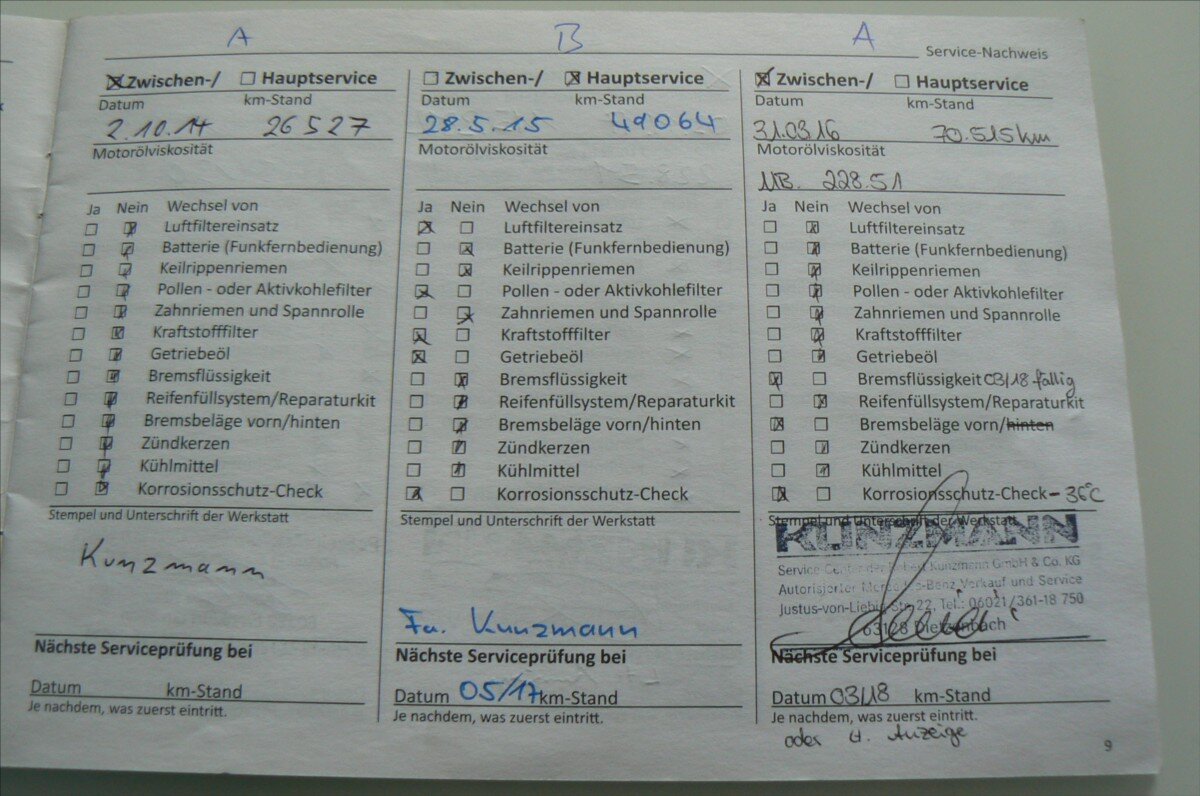 A
B
A
Service-Nachweis
Zwischen-/ Hauptservice
Datum km-Stand
2.10.14 26527
Motorölviskosität
Ja Nein Wechsel von
Luftfiltereinsatz
Batterie (Funkfernbedienung)
Keilrippenriemen
Pollen - oder Aktivkohlefilter
Zahnriemen und Spannrolle
Kraftstofffilter
Getriebeöl
Bremsflüssigkeit
Reifenfüllsystem/Reparaturkit
Bremsbeläge vorn/hinten
Zündkerzen
Kühlmittel
Korrosionsschutz-Check
Stempel und Unterschrift der Werkstatt
Kunzmann
Nächste Serviceprüfung bei
Datum km-Stand
Je nachdem, was zuerst eintritt.
Zwischen-/ Hauptservice
Datum km-Stand
28.5.15 49064
Motorölviskosität
Ja Nein Wechsel von
Luftfiltereinsatz
Batterie (Funkfernbedienung)
Keilrippenriemen
Pollen - oder Aktivkohlefilter
Zahnriemen und Spannrolle
Kraftstofffilter
Getriebeöl
Bremsflüssigkeit
Reifenfüllsystem/Reparaturkit
Bremsbeläge vorn/hinten
Zündkerzen
Kühlmittel
Korrosionsschutz-Check
Stempel und Unterschrift der Werkstatt
Fa. Kunzmann
Nächste Serviceprüfung bei
Datum 05/17 km-Stand
Je nachdem, was zuerst eintritt.
Zwischen-/ Hauptservice
Datum km-Stand
31.03.16 70.515km
Motorölviskosität
MB. 228.51
Ja Nein Wechsel von
Luftfiltereinsatz
Batterie (Funkfernbedienung)
Keilrippenriemen
Pollen - oder Aktivkohlefilter
Zahnriemen und Spannrolle
Kraftstofffilter
Getriebeöl
Bremsflüssigkeit 03/18 fällig
Reifenfüllsystem/Reparaturkit
Bremsbeläge vorn/hinten
Zündkerzen
Kühlmittel
Korrosionsschutz-Check -36°C
Stempel und Unterschrift der Werkstatt
KUNZMANN
Service Center der Robert Kunzmann GmbH & Co. KG
Autorisierter Mercedes-Benz Verkauf und Service
Justus-von-Liebig-Str. 22, Tel.: 06021/361-18 750
63128 Dietzenbach
Nächste Serviceprüfung bei
Datum 03/18 km-Stand
Je nachdem, was zuerst eintritt.
oder lt. Anzeige
9